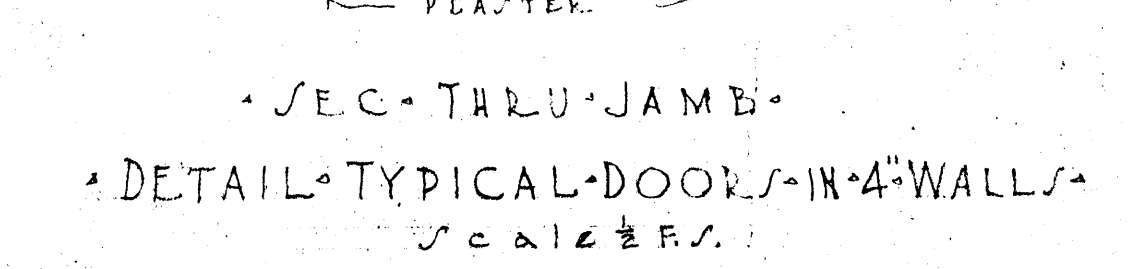 PLASTER
· SEC · THRU · JAMB ·
· DETAIL · TYPICAL · DOORS · IN · 4" · WALLS ·
Scale ½ F.S.